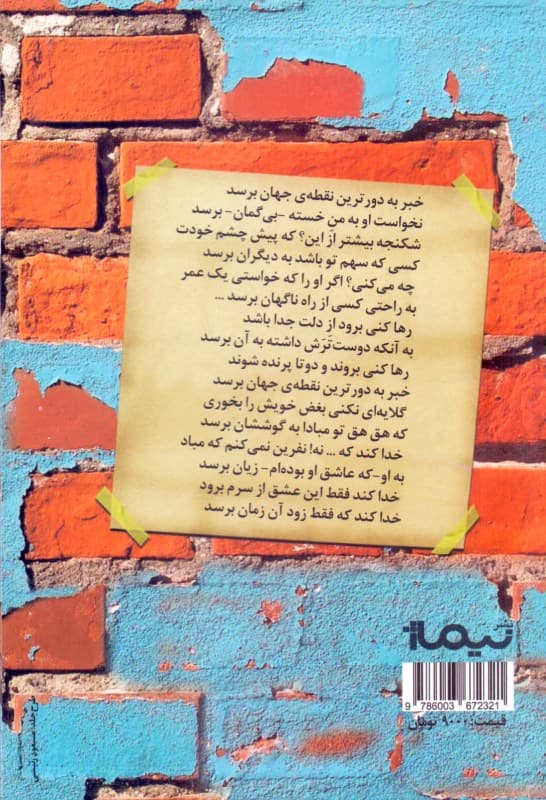 خبر به دورترین نقطه‌ی جهان برسد
نخواست او به من خسته -بی‌گمان- برسد
شکنجه بیشتر از این؟ که پیش چشم خودت
کسی که سهم تو باشد به دیگران برسد
چه می‌کنی؟ اگر او را که خواستی یک عمر
به راحتی کسی از راه ناگهان برسد ...
رها کنی برود از دلت جدا باشد
به آنکه دوست‌تَرَش داشته به آن برسد
رها کنی بروند و دو تا پرنده شوند
خبر به دورترین نقطه‌ی جهان برسد
گلایه‌ای نکنی بغض خویش را بخوری
که هق هق تو مبادا به گوششان برسد
خدا کند که ... نه! نفرین نمی‌کنم که مباد
به او-که عاشق او بوده‌ام- زیان برسد
خدا کند فقط این عشق از سرم برود
خدا کند که فقط زود آن زمان برسد
نیماژ
9 786003 672321
قیمت: ۹۰۰۰ تومان
طرح جلد: مسعود رئیسی